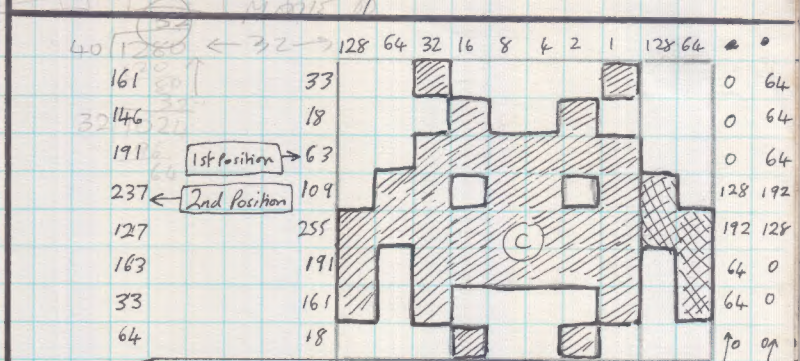 32
40 1280 ← 32 → 128 64 32 16 8 4 2 1 128 64 • •
161 33 0 64
146 18 0 64
191 1st Position → 63 0 64
237 ← 2nd Position 109 128 192
127 255 192 128
C
163 191 64 0
33 161 64 0
64 18 ↑0 0↑